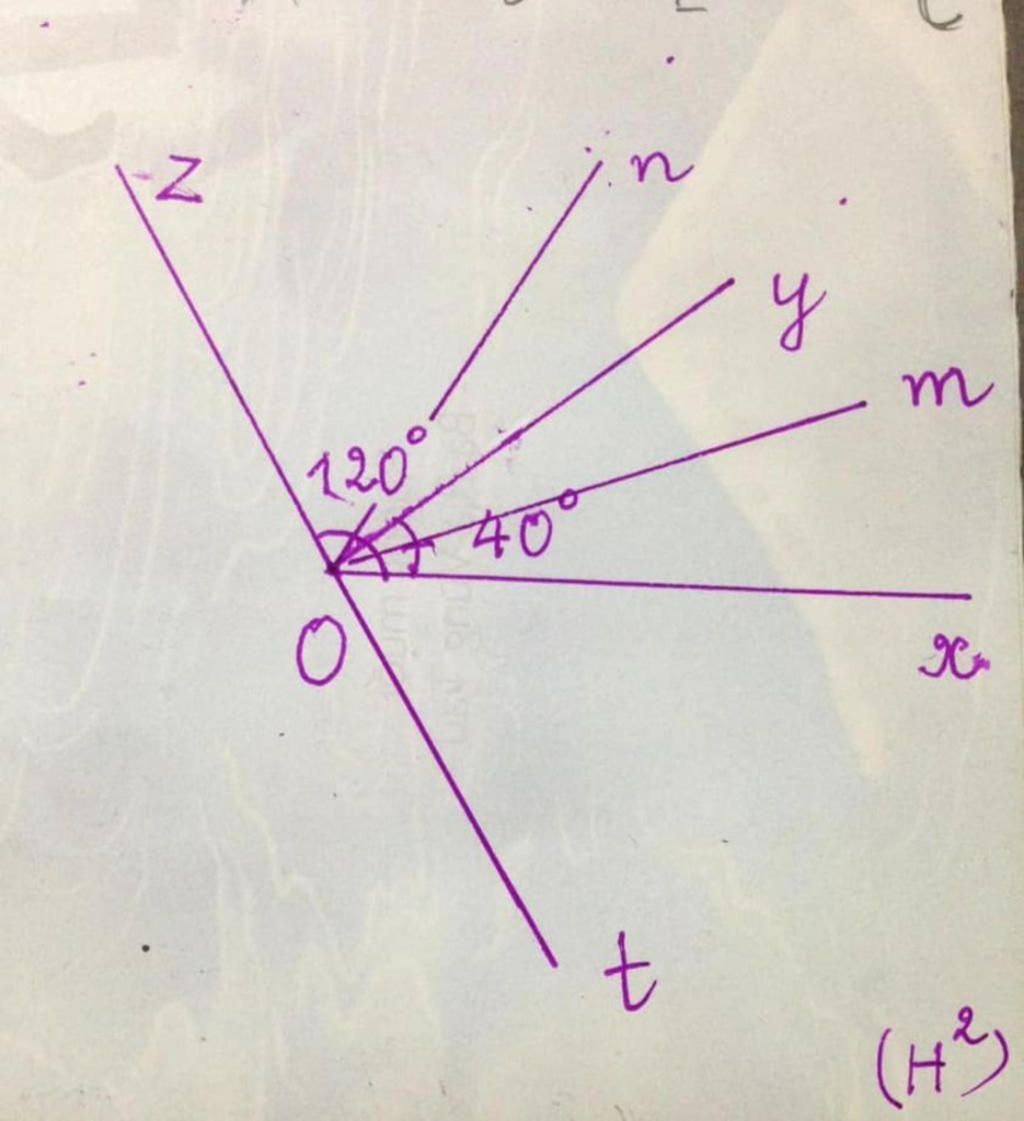 z
n
y
m
120°
40°
O
x
t
(H²)